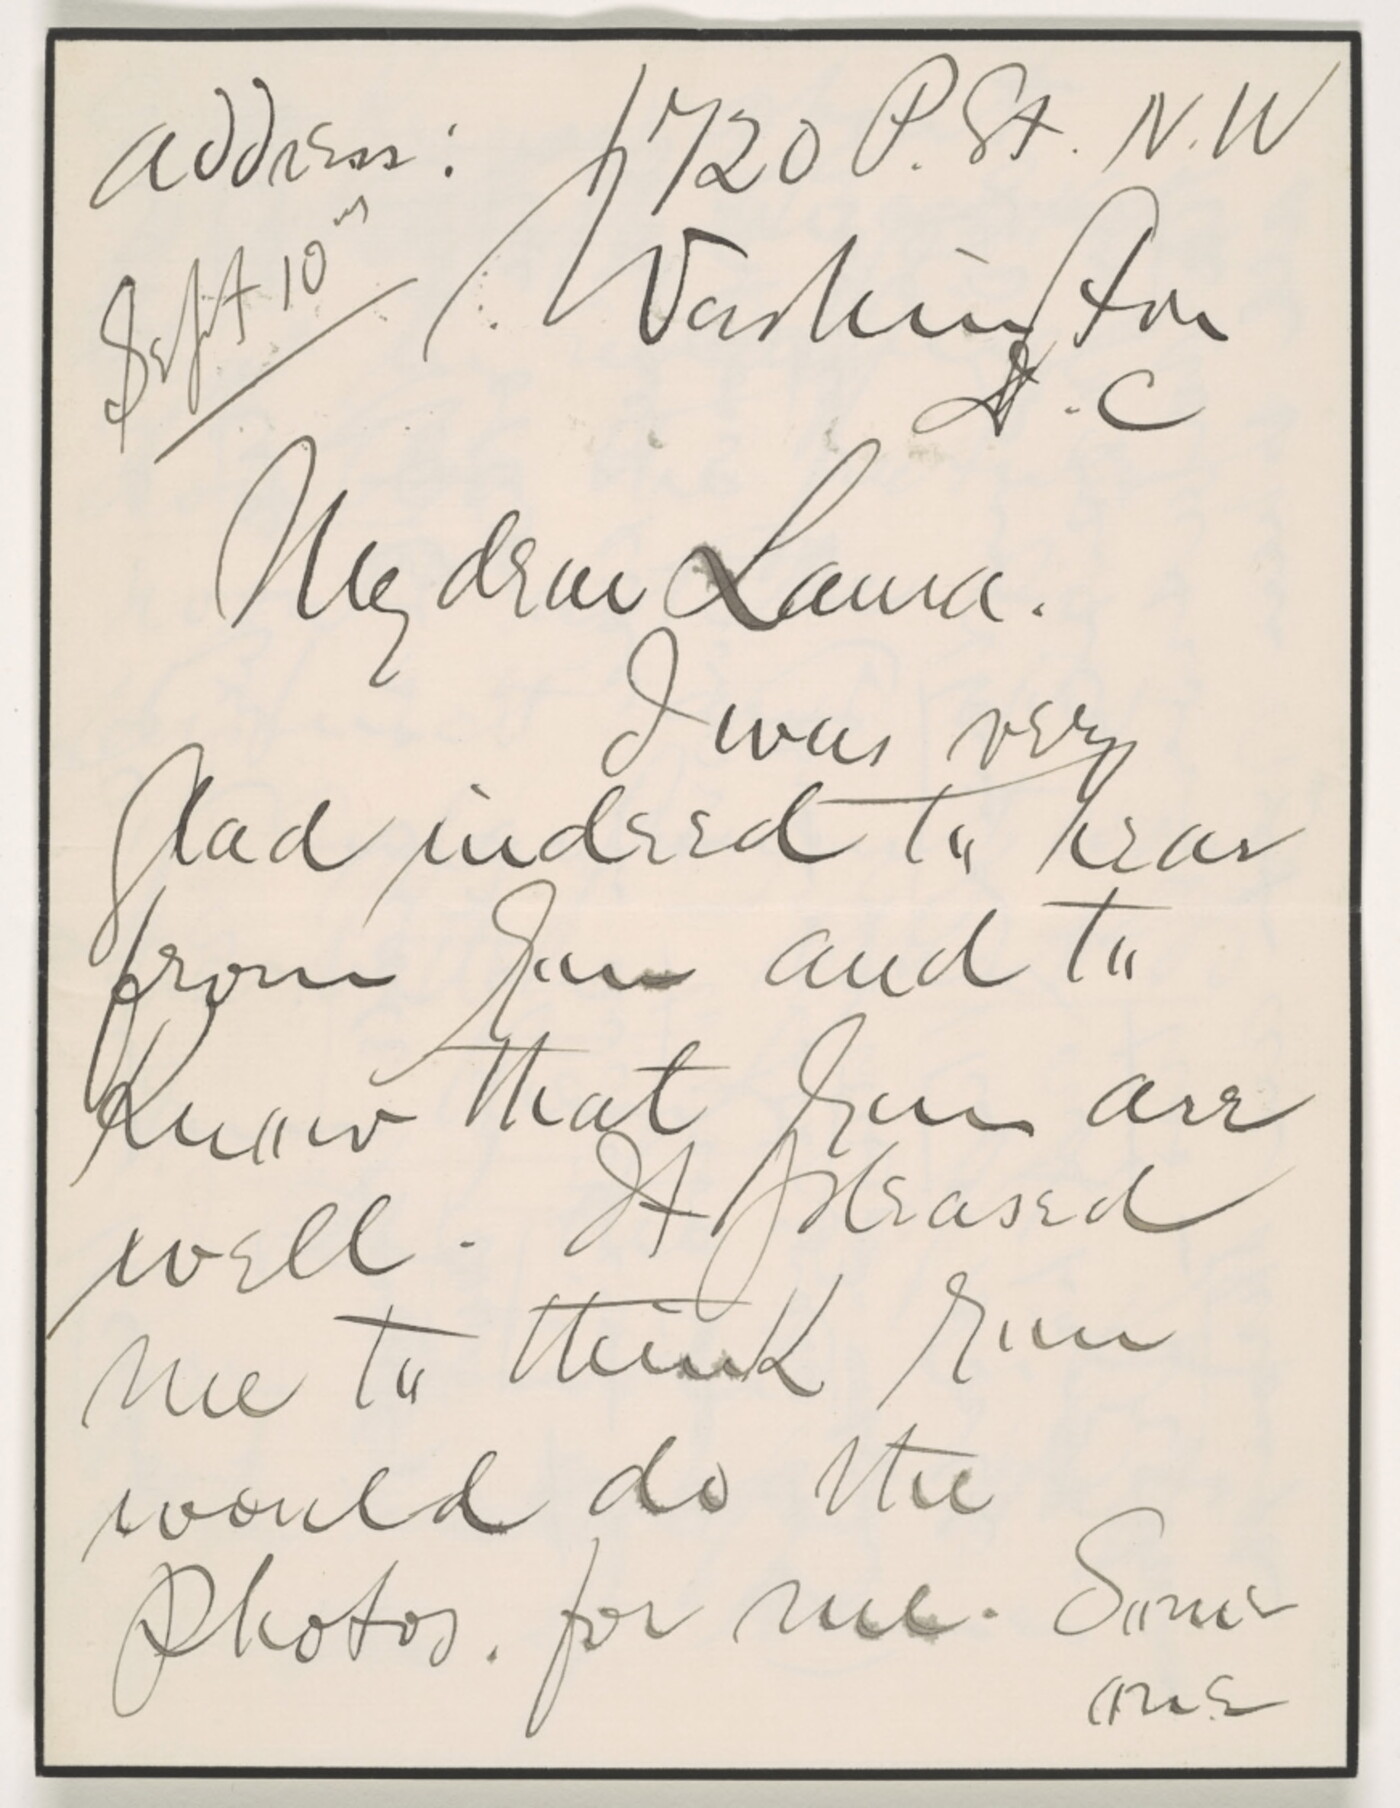 address: 1720 P. St. N.W
Sept 10th
Washington
D.C
My dear Laura.
I was very
glad indeed to hear
from you and to
know that you are
well. It pleased
me to think you
would do the
Photos. for me. Some
one